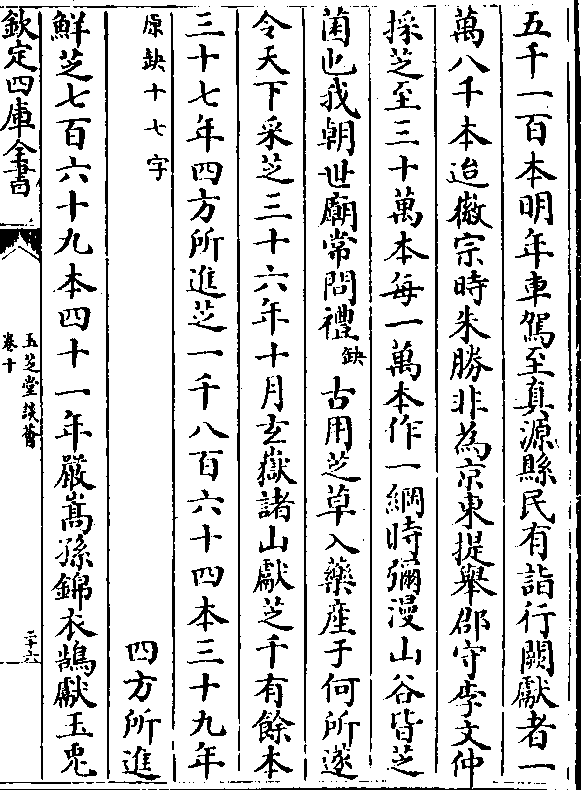 五千一百本明年車駕至真源縣民有詣行闕獻者一
萬八千本迨徽宗時朱勝非為京東提舉郡守李文仲
採芝至三十萬本每一萬本作一綱時彌漫山谷皆芝
菌也我朝世廟常問禮缺古用芝草入藥産于何所遂
令天下采芝三十六年十月玄嶽諸山獻芝千有餘本
三十七年四方所進芝一千八百六十四本三十九年
原缺十七字 四方所進
鮮芝七百六十九本四十一年嚴嵩孫錦衣鵠獻玉兎
欽定四庫全書
玉芝堂談薈
卷十
二十六